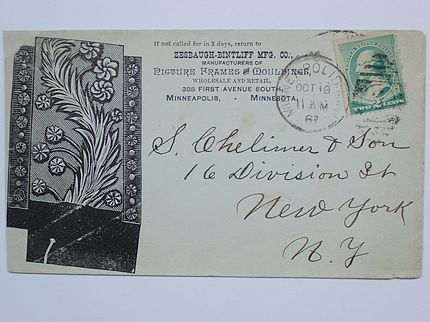 If not called for in 5 days, return to
ZESBAUGH-BINTLIFF MFG. CO.,
MANUFACTURERS OF
PICTURE FRAMES & MOULDINGS,
WHOLESALE AND RETAIL.
308 FIRST AVENUE SOUTH,
MINNEAPOLIS, - MINNESOTA
MINNEAPOLIS
OCT 10
11 AM
87
TWO CENTS
S. Chelimer & Son
16 Division St
New York
N. Y